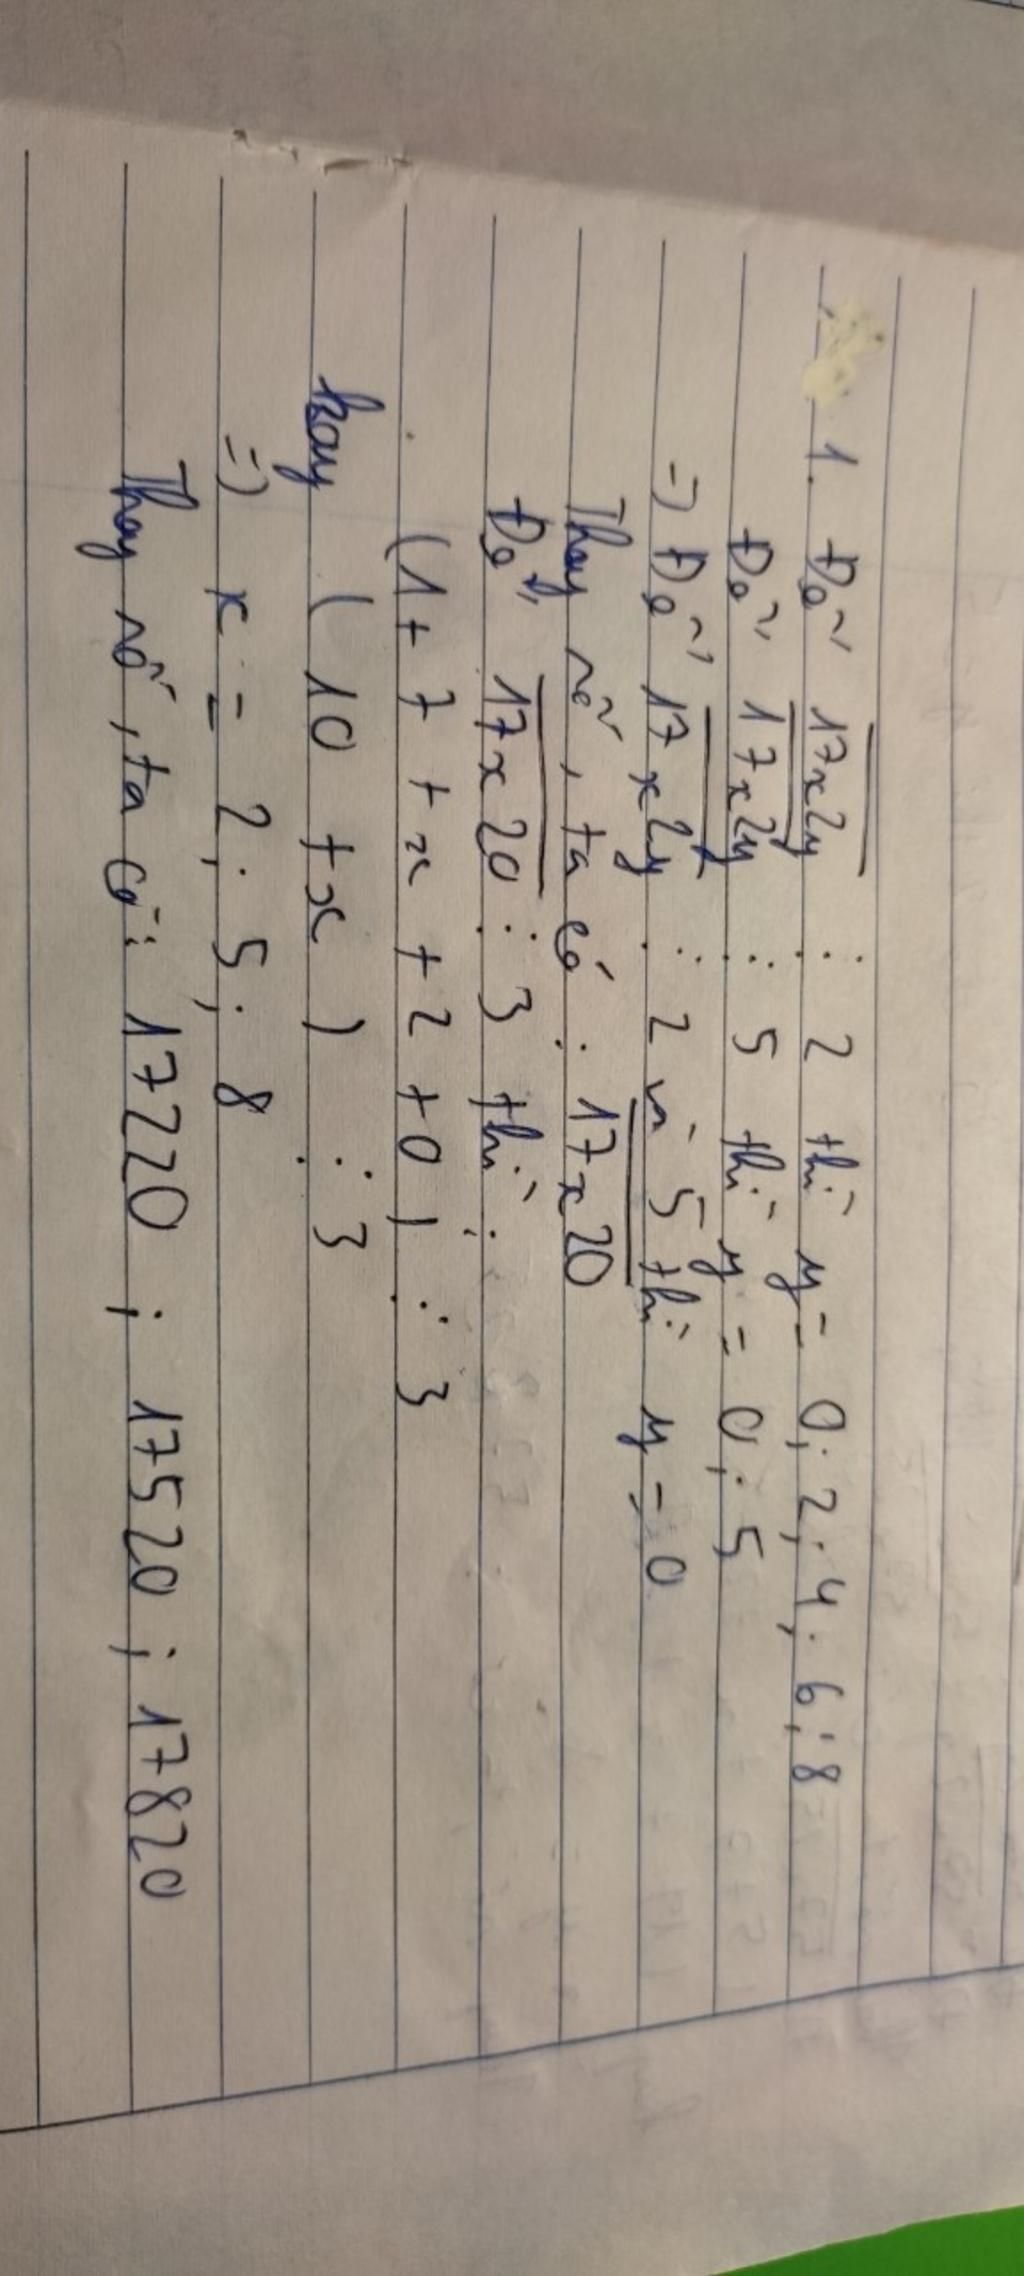 1. Để 17x2y ⋮ 2 thì y = 0; 2; 4; 6; 8
Để 17x2y ⋮ 5 thì y = 0; 5
=) Để 17x2y ⋮ 2 và 5 thì y = 0
Thay số, ta có: 17x20
Để 17x20 ⋮ 3 thì:
(1 + 7 + x + 2 + 0) ⋮ 3
hay (10 + x) ⋮ 3
=) x = 2; 5; 8
Thay số, ta có: 17220; 17520; 17820